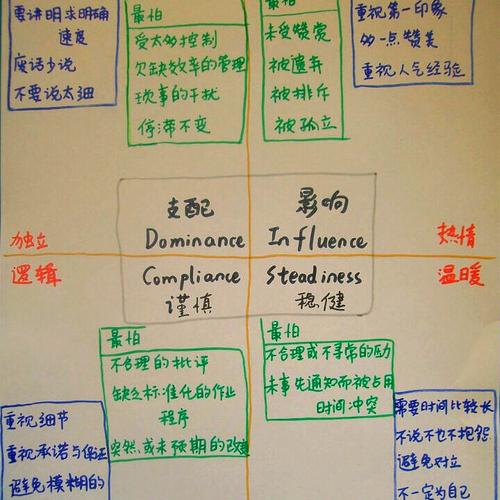 要讲明求明确
速度
废话少说
不要说太细
最怕
受太多控制
欠缺效率的管理
琐事的干扰
停滞不变
最怕
未受赞赏
被遗弃
被排斥
被孤立
重视第一印象
多一点赞美
重视人气经验
支配
Dominance
影响
Influence
独立
热情
逻辑
温暖
Compliance
谨慎
Steadiness
稳健
最怕
不合理的批评
缺乏标准化的作业
程序
突然或未预期的改变
最怕
不合理或不寻常的压力
未事先通知而被占用
时间冲突
重视细节
重视承诺与保证
避免模糊的
需要时间比较长
不说不也不抱怨
避免对立
不一定为自己